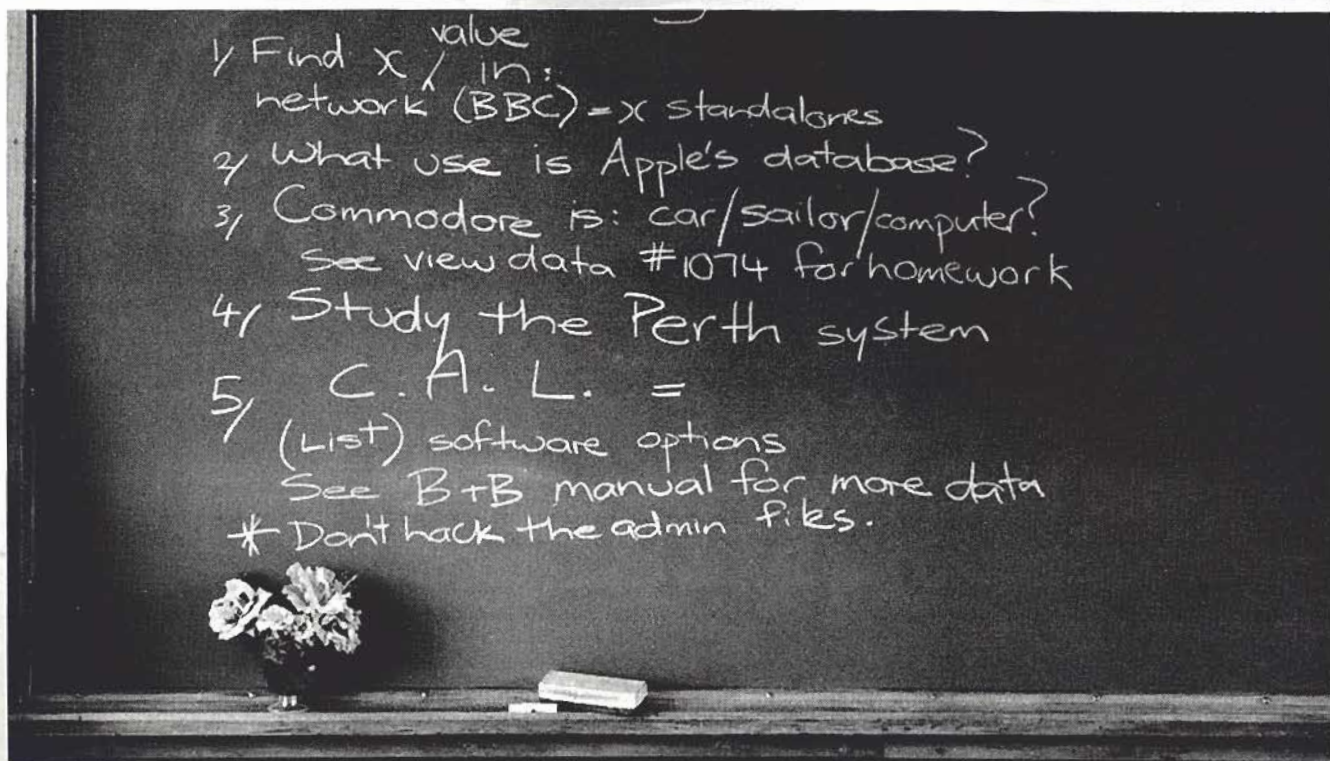 value
1/ Find x ‸ in:
network (BBC) = x standalones
2/ What use is Apple's database?
3/ Commodore is: car/sailor/computer?
See viewdata #1074 for homework
4/ Study the Perth system
5/ C.A.L. =
(List) software options
See B+B manual for more data
* Don't hack the admin files.